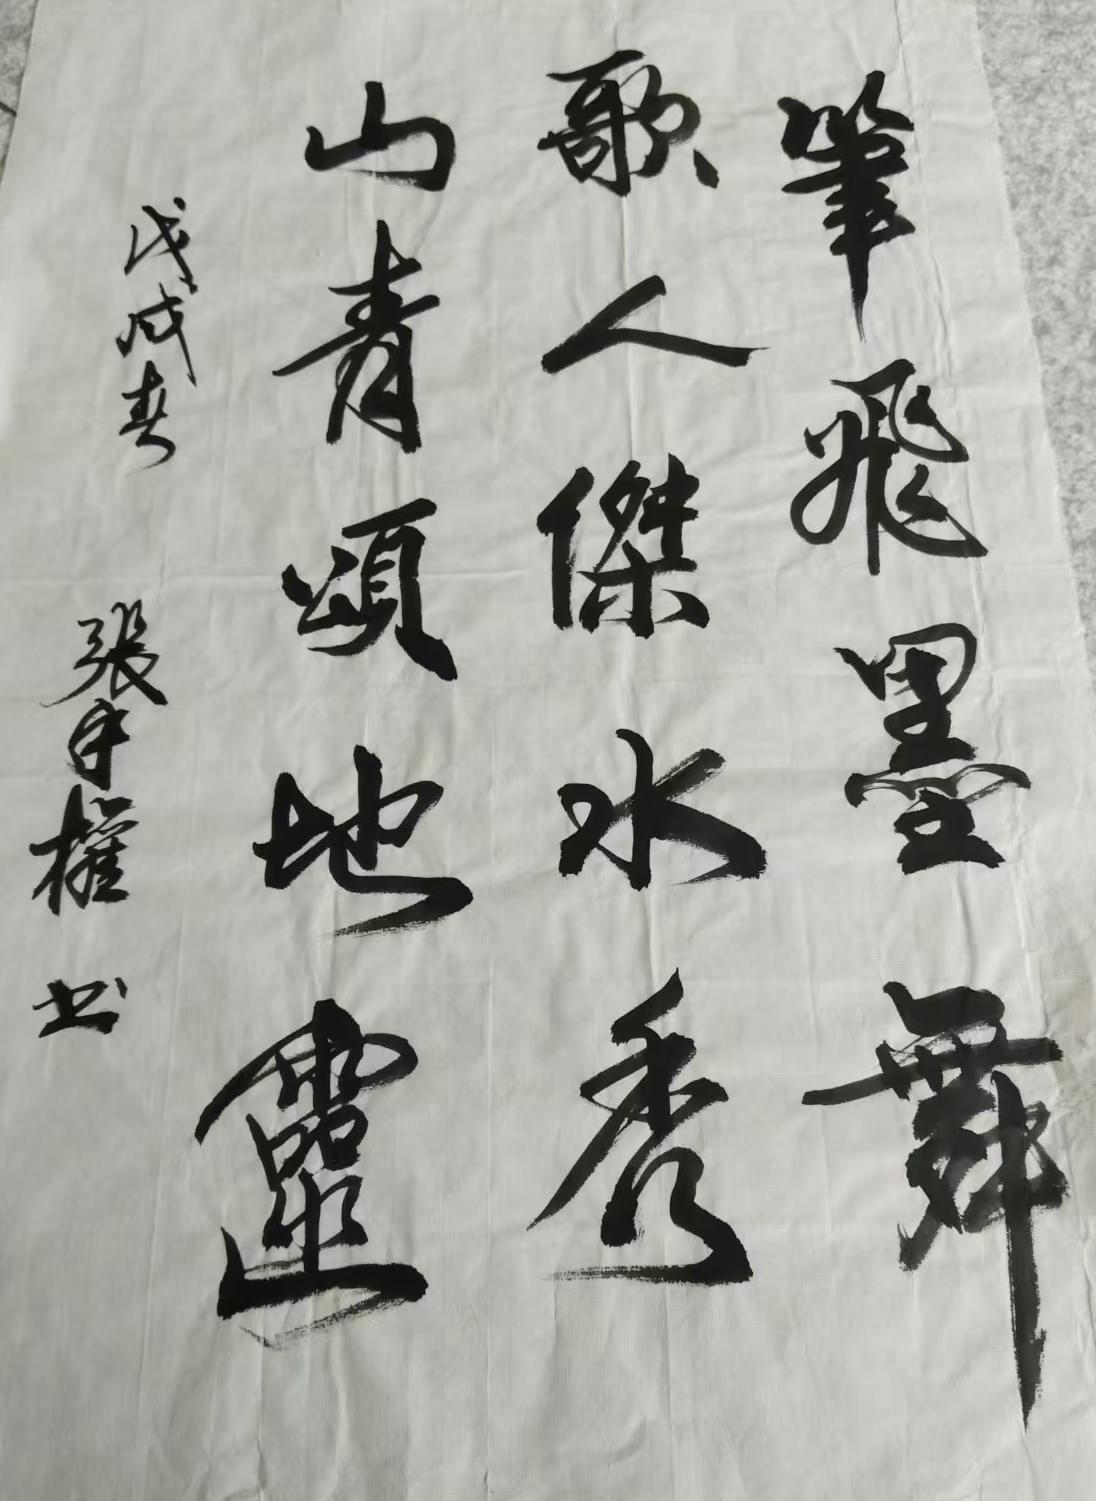 筆飛墨舞
歌人傑水秀
山青頌地靈
戊戌春
張守權书